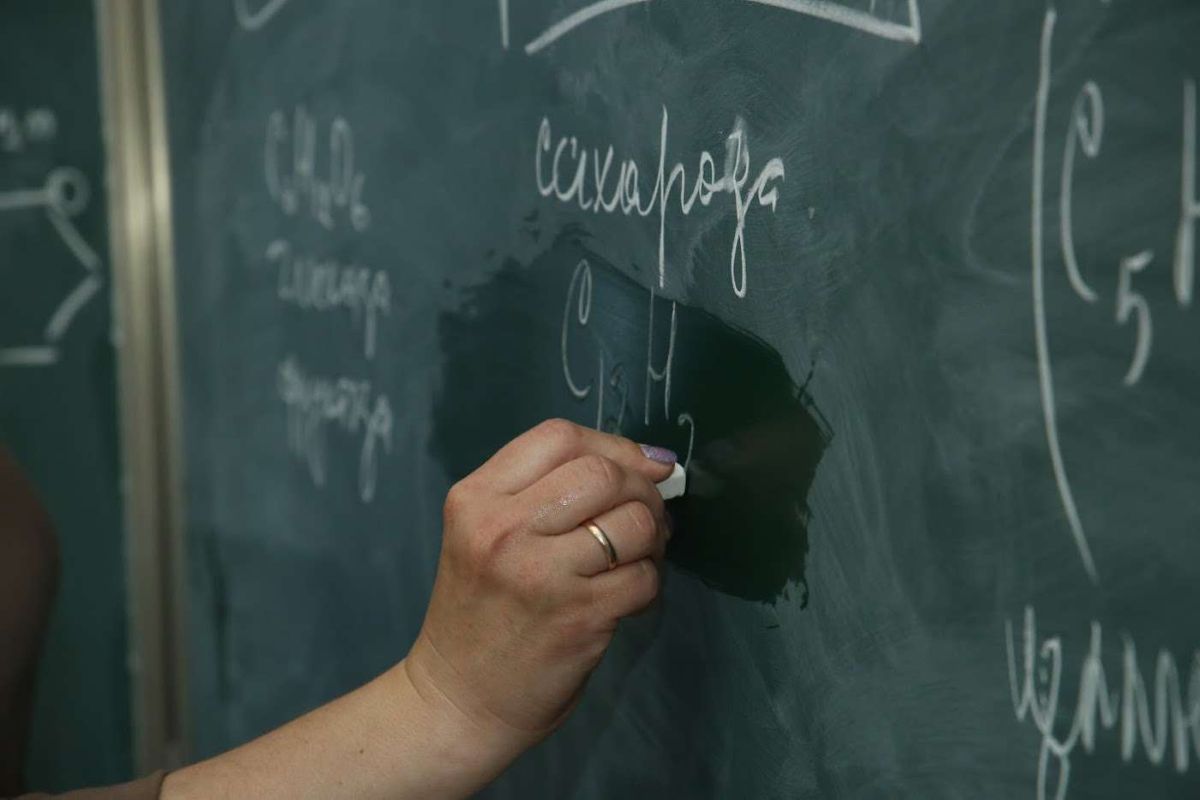 C₆H₁₂O₆
глюкоза
фруктоза
сахароза
C₁₂H₂
(C₅H